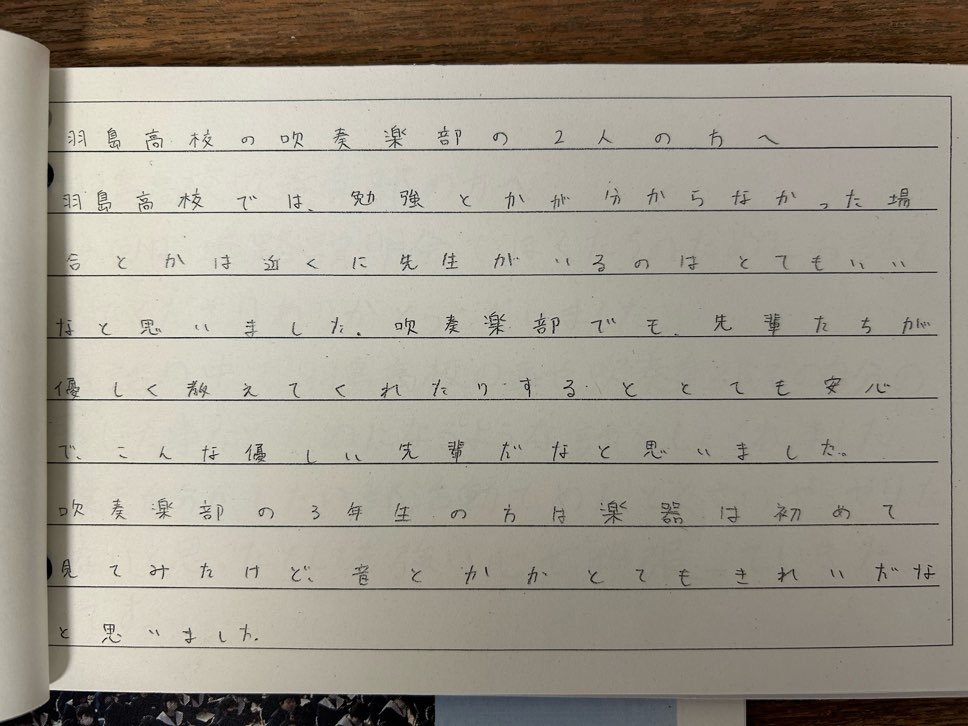 羽島高校の吹奏楽部の2人の方へ
羽島高校では、勉強とかが分からなかった場
合とかは近くに先生がいるのはとてもいい
なと思いました。吹奏楽部でも、先輩たちが
優しく教えてくれたりするととても安心
で、こんな優しい先輩だなと思いました。
吹奏楽部の3年生の方は楽器は初めて
見てみたけど、音とかがとてもきれいだな
と思いました。